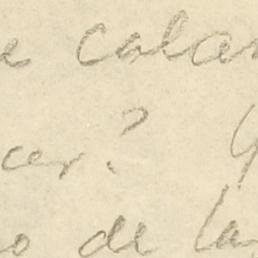 e colar
cer? Y
o de la